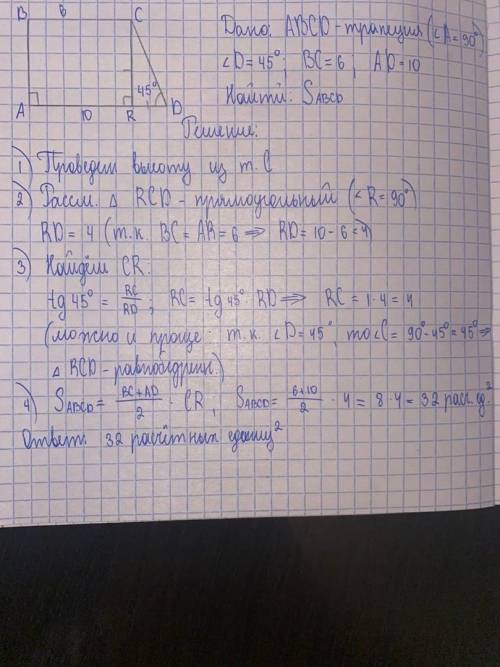 B 6 C
Дано: ABCD - трапеция (∠A = 90°)
∠D = 45°; BC = 6; AD = 10
Найти: S_ABCD
45°
A 10 R D
Решение:
1) Проведем высоту из т. C
2) Рассм. △ RCD - прямоугольный (∠R = 90°)
RD = 4 (т.к. BC = AR = 6 ⇒ RD = 10 - 6 = 4)
3) Найдём CR.
tg 45° = RC/RD; RC = tg 45° · RD ⇒ RC = 1 · 4 = 4
(можно и проще: т.к. ∠D = 45°, то ∠C = 90° - 45° = 45° ⇒
△ RCD - равнобедрен.)
4) S_ABCD = BC + AD/2 · CR, S_ABCD = 6 + 10/2 · 4 = 8 · 4 = 32 расч. ед.²
Ответ: 32 расчётных единиц²